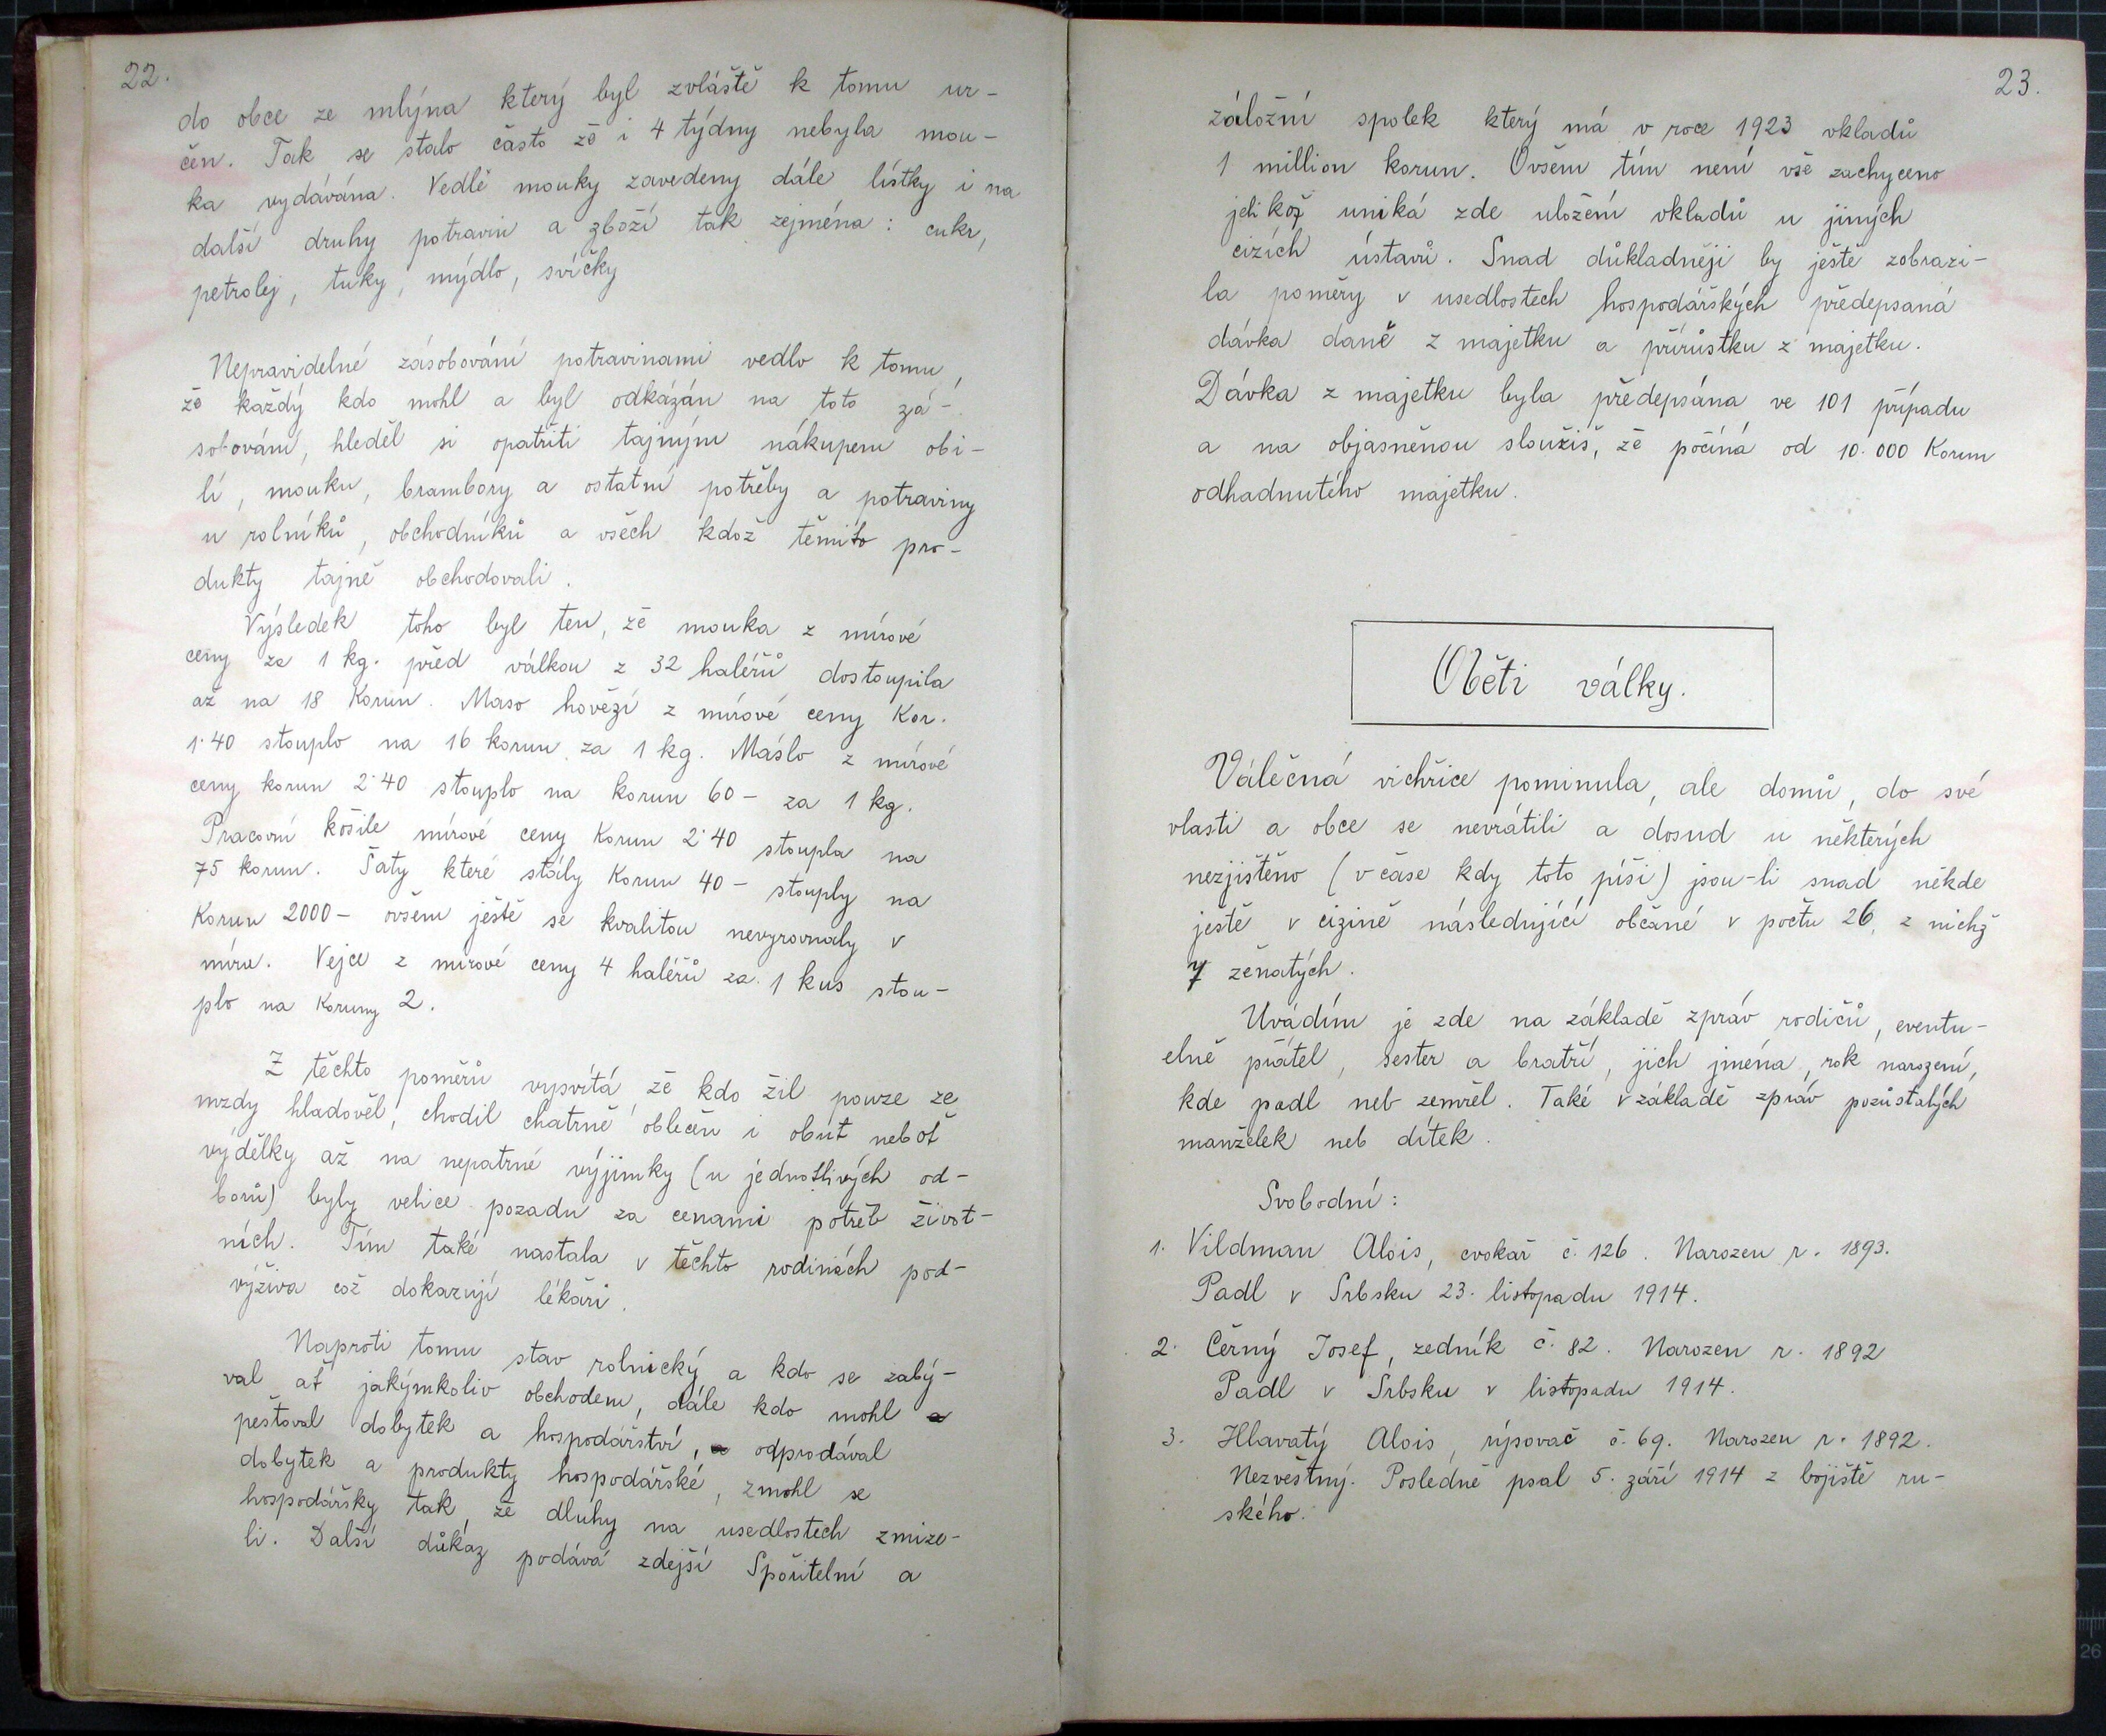 22.
do obce ze mlýna který byl zvláště k tomu ur-
čen. Tak se stalo často že i 4 týdny nebyla mou-
ka vydávána. Vedlě mouky zavedeny dále lístky i na
další druhy potravin a zboží tak zejména: cukr,
petrolej, tuky, mýdlo, svíčky
Nepravidelné zásobování potravinami vedlo k tomu,
že každý kdo mohl a byl odkázán na toto zá-
sobování, hleděl si opatřiti tajným nákupem obi-
lí, mouku, brambory a ostatní potřeby a potraviny
u rolníků, obchodníků a všech kdož těmito pro-
dukty tajně obchodovali.
Výsledek toho byl ten, že mouka z mírové
ceny za 1 kg. před válkou z 32 haléřů dostoupila
až na 18 Korun. Maso hovězí z mírové ceny Kor.
1·40 stouplo na 16 korun za 1 kg. Máslo z mírové
ceny korun 2·40 stouplo na korun 60- za 1 kg.
Pracovní košile mírové ceny Korun 2·40 stoupla na
75 korun. Šaty které stály Korun 40- stouply na
Korun 2000- ovšem ještě se kvalitou nevyrovnaly v
míru. Vejce z mírové ceny 4 haléřů za 1 kus stou-
plo na Koruny 2.
Z těchto poměrů vysvítá že kdo žil pouze ze
mzdy hladověl, chodil chatrně oblečen i obut neboť
výdělky až na nepatrné výjimky (u jednotlivých od-
borů) byly velice pozadu za cenami potřeb život-
ních. Tím také nastala v těchto rodinách pod-
výživa což dokazují lékaři.
Naproti tomu stav rolnický a kdo se zabý-
val ať jakýmkoliv obchodem, dále kdo mohl a
pěstoval dobytek a hospodářství, a odprodával
dobytek a produkty hospodářské, zmohl se
hospodářsky tak, že dluhy na usedlostech zmize-
li. Další důkaz podává zdejší Spořitelní a
23.
záložní spolek který má v roce 1923 vkladů
1 million korun. Ovšem tím není vše zachyceno
jelikož uniká zde uložení vkladů u jiných
cizích ústavů. Snad důkladněji by ještě zobrazi-
la poměry v usedlostech hospodářských předepsaná
dávka daně z majetku a přírůstku z majetku.
Dávka z majetku byla předepsána ve 101 případu
a na objasněnou sloužiš, že počíná od 10.000 Korun
odhadnutého majetku.
Oběti války.
Válečná vichřice pominula, ale domů, do své
vlasti a obce se nevrátili a dosud u některých
nezjištěno (v čase kdy toto píši) jsou-li snad někde
ještě v cizině následující občané v počtu 26, z nichž
7 ženatých.
Uvádím je zde na základě zpráv rodičů, eventu-
elně přátel, sester a bratří, jich jména, rok narození,
kde padl neb zemřel. Také v základě zpráv pozůstalých
manželek neb dítek.
Svobodní:
1. Vildman Alois, cvokař č. 126. Narozen r. 1893.
Padl v Srbsku 23. listopadu 1914.
2. Černý Josef, zedník č. 82. Narozen r. 1892
Padl v Srbsku v listopadu 1914.
3. Hlavatý Alois, rýsovač č. 69. Narozen r. 1892.
Nezvěstný. Posledně psal 5. září 1914 z bojiště ru-
ského.
26